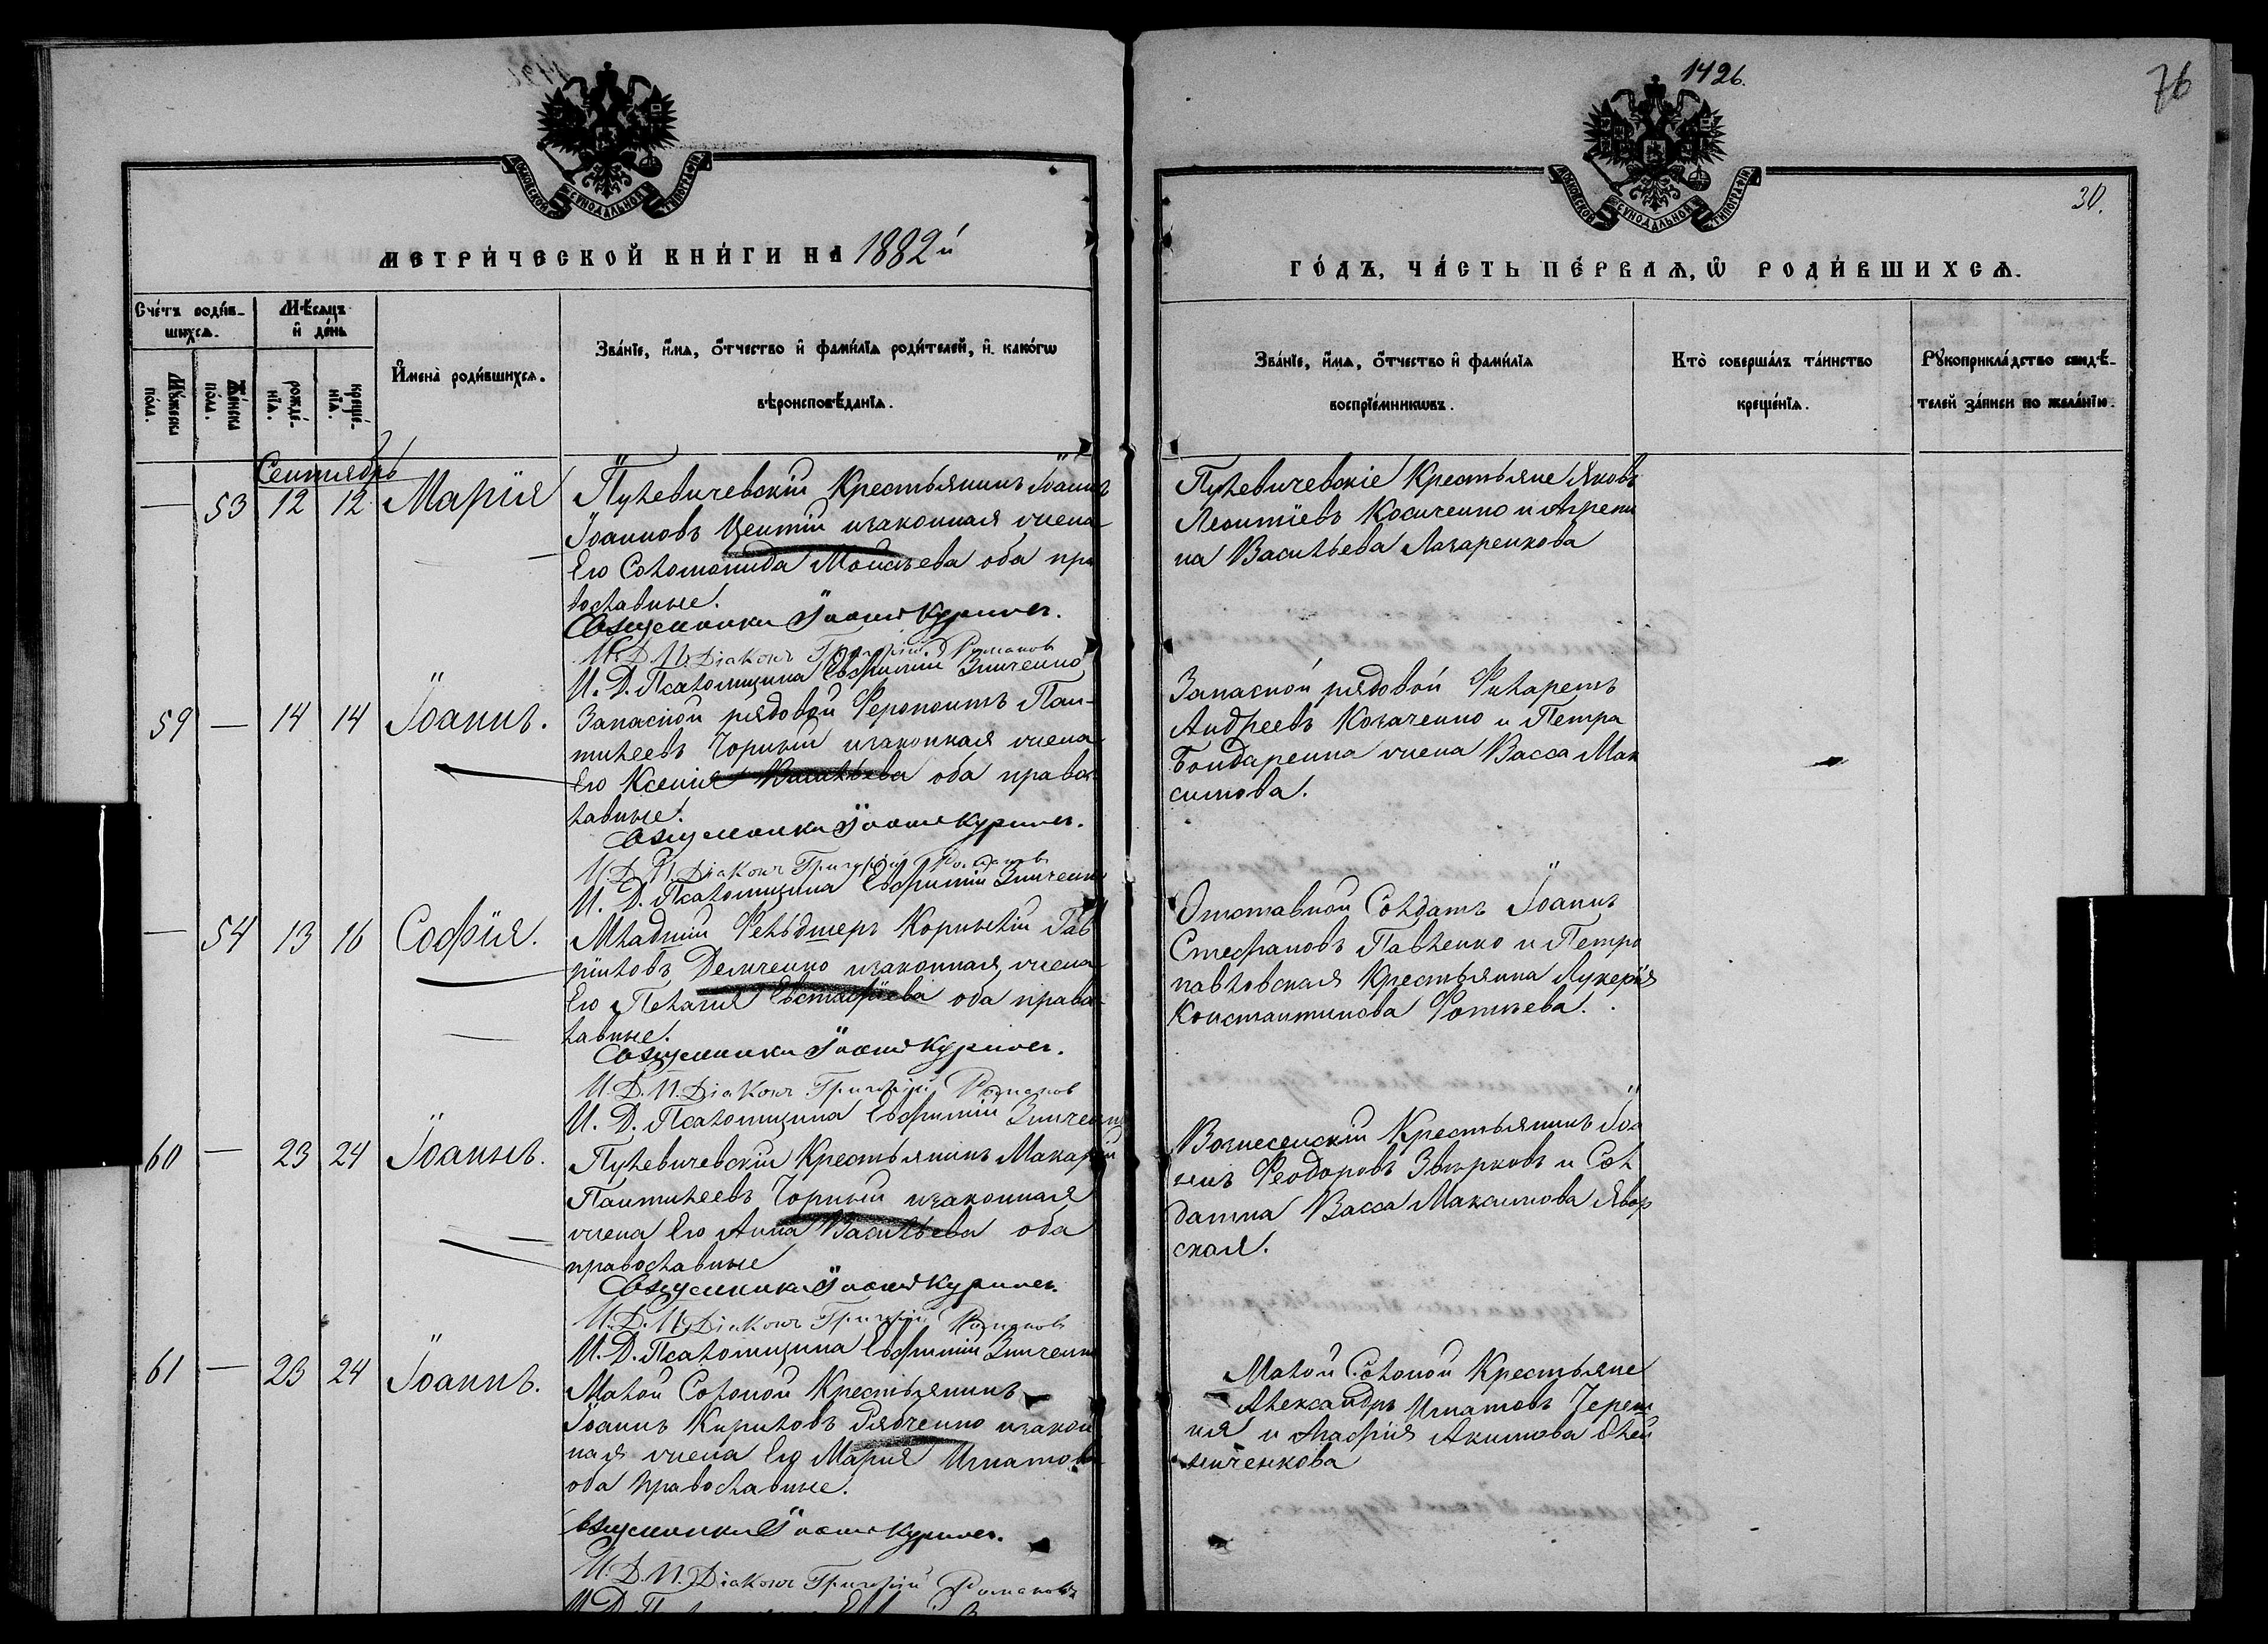 1426.
76
30.
МОСКОВСКОЙ СѴНОДАЛЬНОЙ ТИПОГРАФІИ
МОСКОВСКОЙ СѴНОДАЛЬНОЙ ТИПОГРАФІИ
МЕТРИ́ЧЕСКОЙ КНИ́ГИ НА 1882й
ГО́ДЪ, ЧА́СТЬ ПЕ́РВАѦ, Ѡ РОДИ́ВШИХСѦ.
Сче́тъ роди́в-
шихсѧ.
Мꙋ́жеска по́ла.
Же́нска по́ла.
Мѣ́сѧцъ
и҆ де́нь
рожде́-
нїѧ.
креще́-
нїѧ.
И҆мена̀ роди́вшихсѧ.
Зва́нїе, и҆́мѧ, ѻ҆́тчество и҆ фами́лїѧ роди́телей, и҆ како́гѡ
вѣроисповѣ́данїѧ.
Зва́нїе, и҆́мѧ, ѻ҆́тчество и҆ фами́лїѧ
воспрїе́мникѡвъ.
Кто̀ соверша́лъ та́инство
креще́нїѧ.
Рꙋкоприкла́дство свидѣ́-
телей за́писи по жела́нїю.
Сентябрь
— 53 12 12 Марія
Пулевичевскій Крестьянинъ Іоаннъ
Іоанновъ Центій изаконная жена
Его Соломонида Моисѣева оба пра
вославные.
Священникъ Іоаннъ Курилов.
И. Д. П. Діаконъ Григорій Романовъ
И. Д. Псаломщика Евфимій Зинченко
Пулевичевскіе Крестьяне Яковъ
Леонтіевъ Косиченко и Агрепи
на Васильева Лазаренкова
59 — 14 14 Іоаннъ.
Запасной рядовой Феропонтъ Пан-
тилеевъ Чорный изаконная жена
Его Ксенія Васильева оба правос
лавные.
Священникъ Іоаннъ Курилов.
И. Д. П. Діаконъ Григорій Романовъ
И. Д. Псаломщика Евфимій Зинченко
Запасной рядовой Филаретъ
Андреевъ Козаченко и Петра
Бондаренка жена Васса Мак
симова.
— 54 13 16 Софія.
Младшій Фельдшеръ Корнилій Гав
ріиловъ Демченко изаконная жена
Его Пелагія Евстафіева оба правос
лавные.
Священникъ Іоаннъ Курилов.
И. Д. П. Діаконъ Григорій Романов
И. Д. Псаломщика Евфимій Зинченко
Отставной Солдатъ Іоаннъ
Стефановъ Павленко и Петро
павловская Крестьянка Лукерія
Константинова Фотиева.
60 — 23 24 Іоаннъ.
Пулевичевскій Крестьянинъ Макарій
Пантилеевъ Чорный изаконная
жена Его Анна Васильева оба
православные
Священникъ Іоаннъ Курилов.
И. Д. П. Діаконъ Григорій Романовъ
И. Д. Псаломщика Евфимій Зинченко
Вознесенскій Крестьянинъ Іоа
ннъ Феодоровъ Звѣрковъ и Сол
датка Васса Максимова Явор
ская.
61 — 23 24 Іоаннъ.
Малой Солоной Крестьянинъ
Іоаннъ Кириловъ Рябченко изакон
ная жена Его Марія Игнатова
оба православные.
Священникъ Іоаннъ Курилов.
И. Д. П. Діаконъ Григорій Романовъ
Малой Солоной Крестьяне
Александръ Игнатовъ
и Марфія Акимова Олей
ниченкова